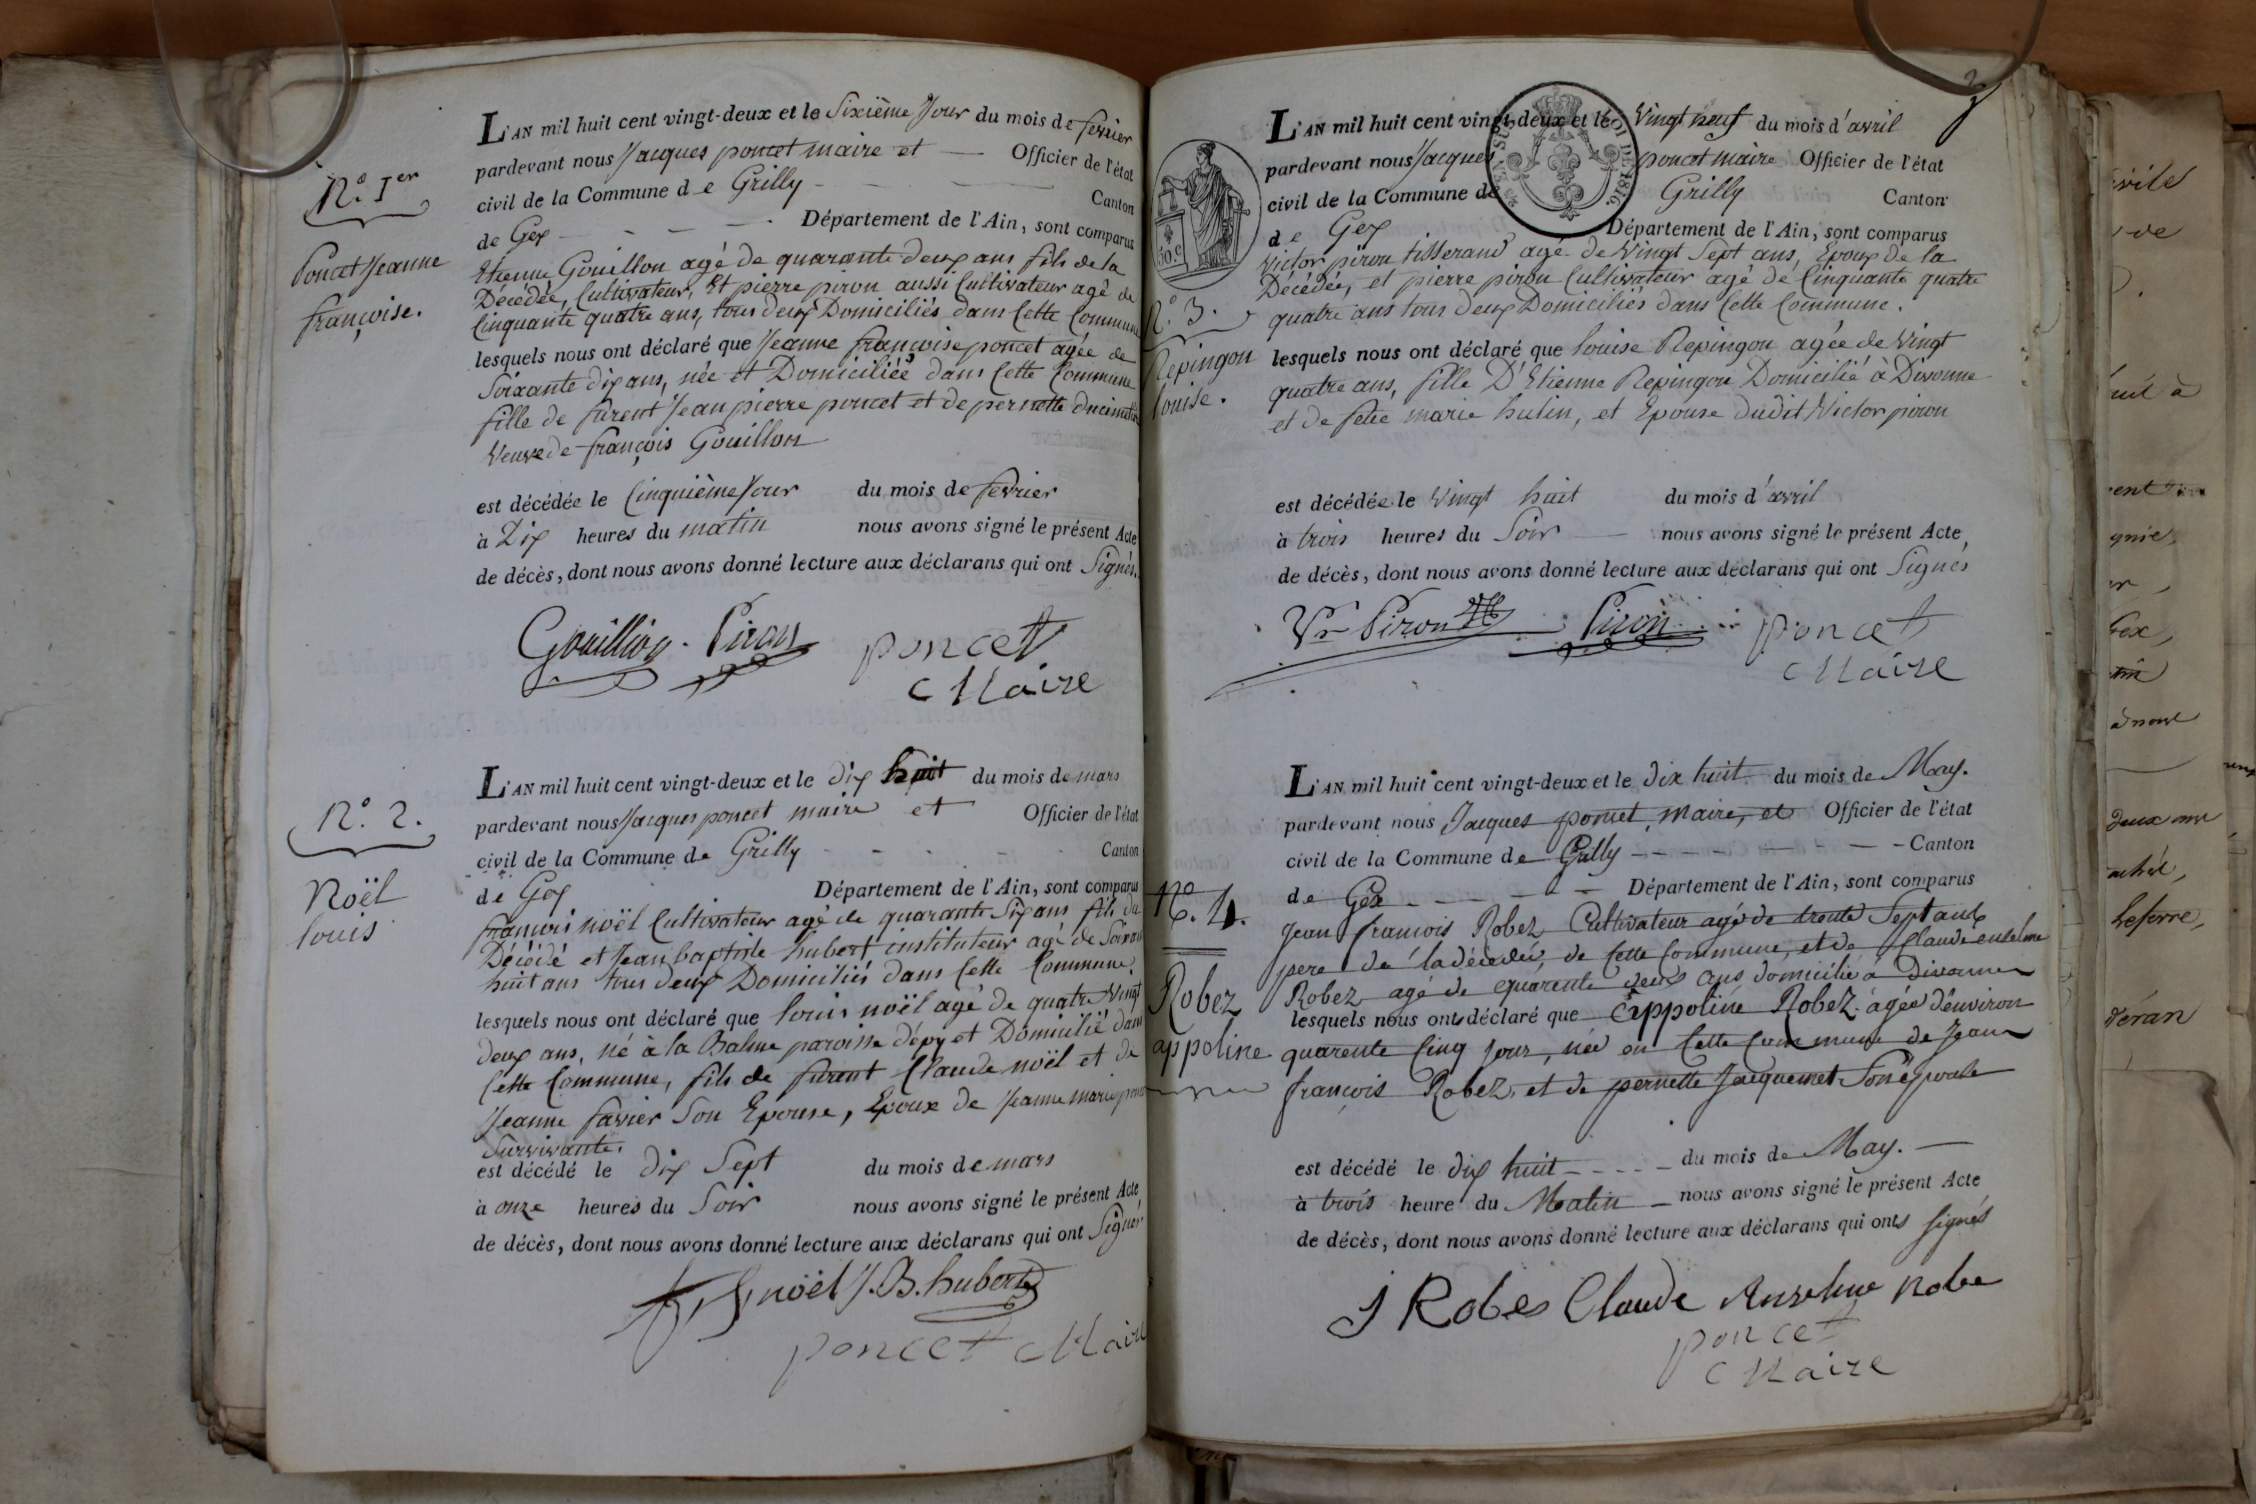 N.° 1er
Poncet Jeanne
françoise.
L'AN mil huit cent vingt-deux et le Sixième Jour du mois de fevrier
pardevant nous Jacques poncet maire et — Officier de l'état
civil de la Commune de Grilly - - — Canton
de Gex - - - - Département de l'Ain, sont comparus
Etienne Gouillon agé de quarante deux ans fils de la
Décédée, Cultivateur, Et pierre piron aussi Cultivateur agé de
Cinquante quatre ans, tous deux Domiciliés dans Cette Commune
lesquels nous ont déclaré que Jeanne françoise poncet agée de
Soixante dix ans, née et Domiciliée dans Cette Commune
fille de furent Jean pierre poncet et de pernette
Veuve de françois Gouillon
est décédée le Cinquième Jour du mois de fevrier
à Dix heures du matin nous avons signé le présent Acte
de décès, dont nous avons donné lecture aux déclarans qui ont Signés.
Gouillon. Piron poncet
Maire
N.° 2.
Noël
louis
L'AN mil huit cent vingt-deux et le dix huit du mois de mars
pardevant nous Jacques poncet maire et Officier de l'état
civil de la Commune de Grilly - - - - Canton
de Gex Département de l'Ain, sont comparus
françois noël Cultivateur agé de quarante Six ans fils du
Décédé et Jean baptiste hubert instituteur agé de Soixan
huit ans tous deux Domiciliés dans Cette Commune.
lesquels nous ont déclaré que louis noël agé de quatre Vingt
deux ans, né à la Balme paroisse d'épy et Domicilié dans
Cette Commune, fils de furent Claude noël et de
Jeanne favier Son Epouse, Epoux de Jeanne marie
Survivante.
est décédé le dix Sept du mois de mars
à onze heures du Soir nous avons signé le présent Acte
de décès, dont nous avons donné lecture aux déclarans qui ont Signés
noël J.B. hubert
poncet Maire
3
60 c
ROI DE 1816.
N.° 3.
Repingon
louise.
L'AN mil huit cent vingt-deux et le Vingt neuf du mois d'avril
pardevant nous Jacques poncet maire Officier de l'état
civil de la Commune de Grilly Canton
de Gex Département de l'Ain, sont comparus
Victor piron tisserand agé de Vingt Sept ans, Epoux de la
Décédée, et pierre piron Cultivateur agé de Cinquante quatre
quatre ans tous deux Domiciliés dans Cette Commune.
lesquels nous ont déclaré que louise Repingon agée de Vingt
quatre ans, fille D'Etienne Repingon Domicilié à Divonne
et de feue marie hutin, et Epouse dudit Victor piron
est décédée le Vingt huit du mois d'avril
à trois heures du Soir — nous avons signé le présent Acte
de décès, dont nous avons donné lecture aux déclarans qui ont Signés
Vr Piron Piron poncet
Maire
N.° 4.
Robez
appoline
L'AN mil huit cent vingt-deux et le dix huit du mois de May.
pardevant nous Jacques poncet, maire, et Officier de l'état
civil de la Commune de Grilly - - - - Canton
de Gex - - - - Département de l'Ain, sont comparus
Jean françois Robez Cultivateur agé de trente Sept ans
pere de la décédée, de Cette Commune, et de Claude enselme
Robez agé de quarente deux ans domicilié à Divonne
lesquels nous ont déclaré que appoline Robez agée d'environ
quarente Cinq jour, née en Cette Commune de Jean
françois Robez, et de pernette Jacquemet Son épouse
est décédé le dix huit - - - - du mois de May. —
à trois heure du Matin — nous avons signé le présent Acte
de décès, dont nous avons donné lecture aux déclarans qui ont signés
J Robes Claude Anselme Robe
poncet
Maire